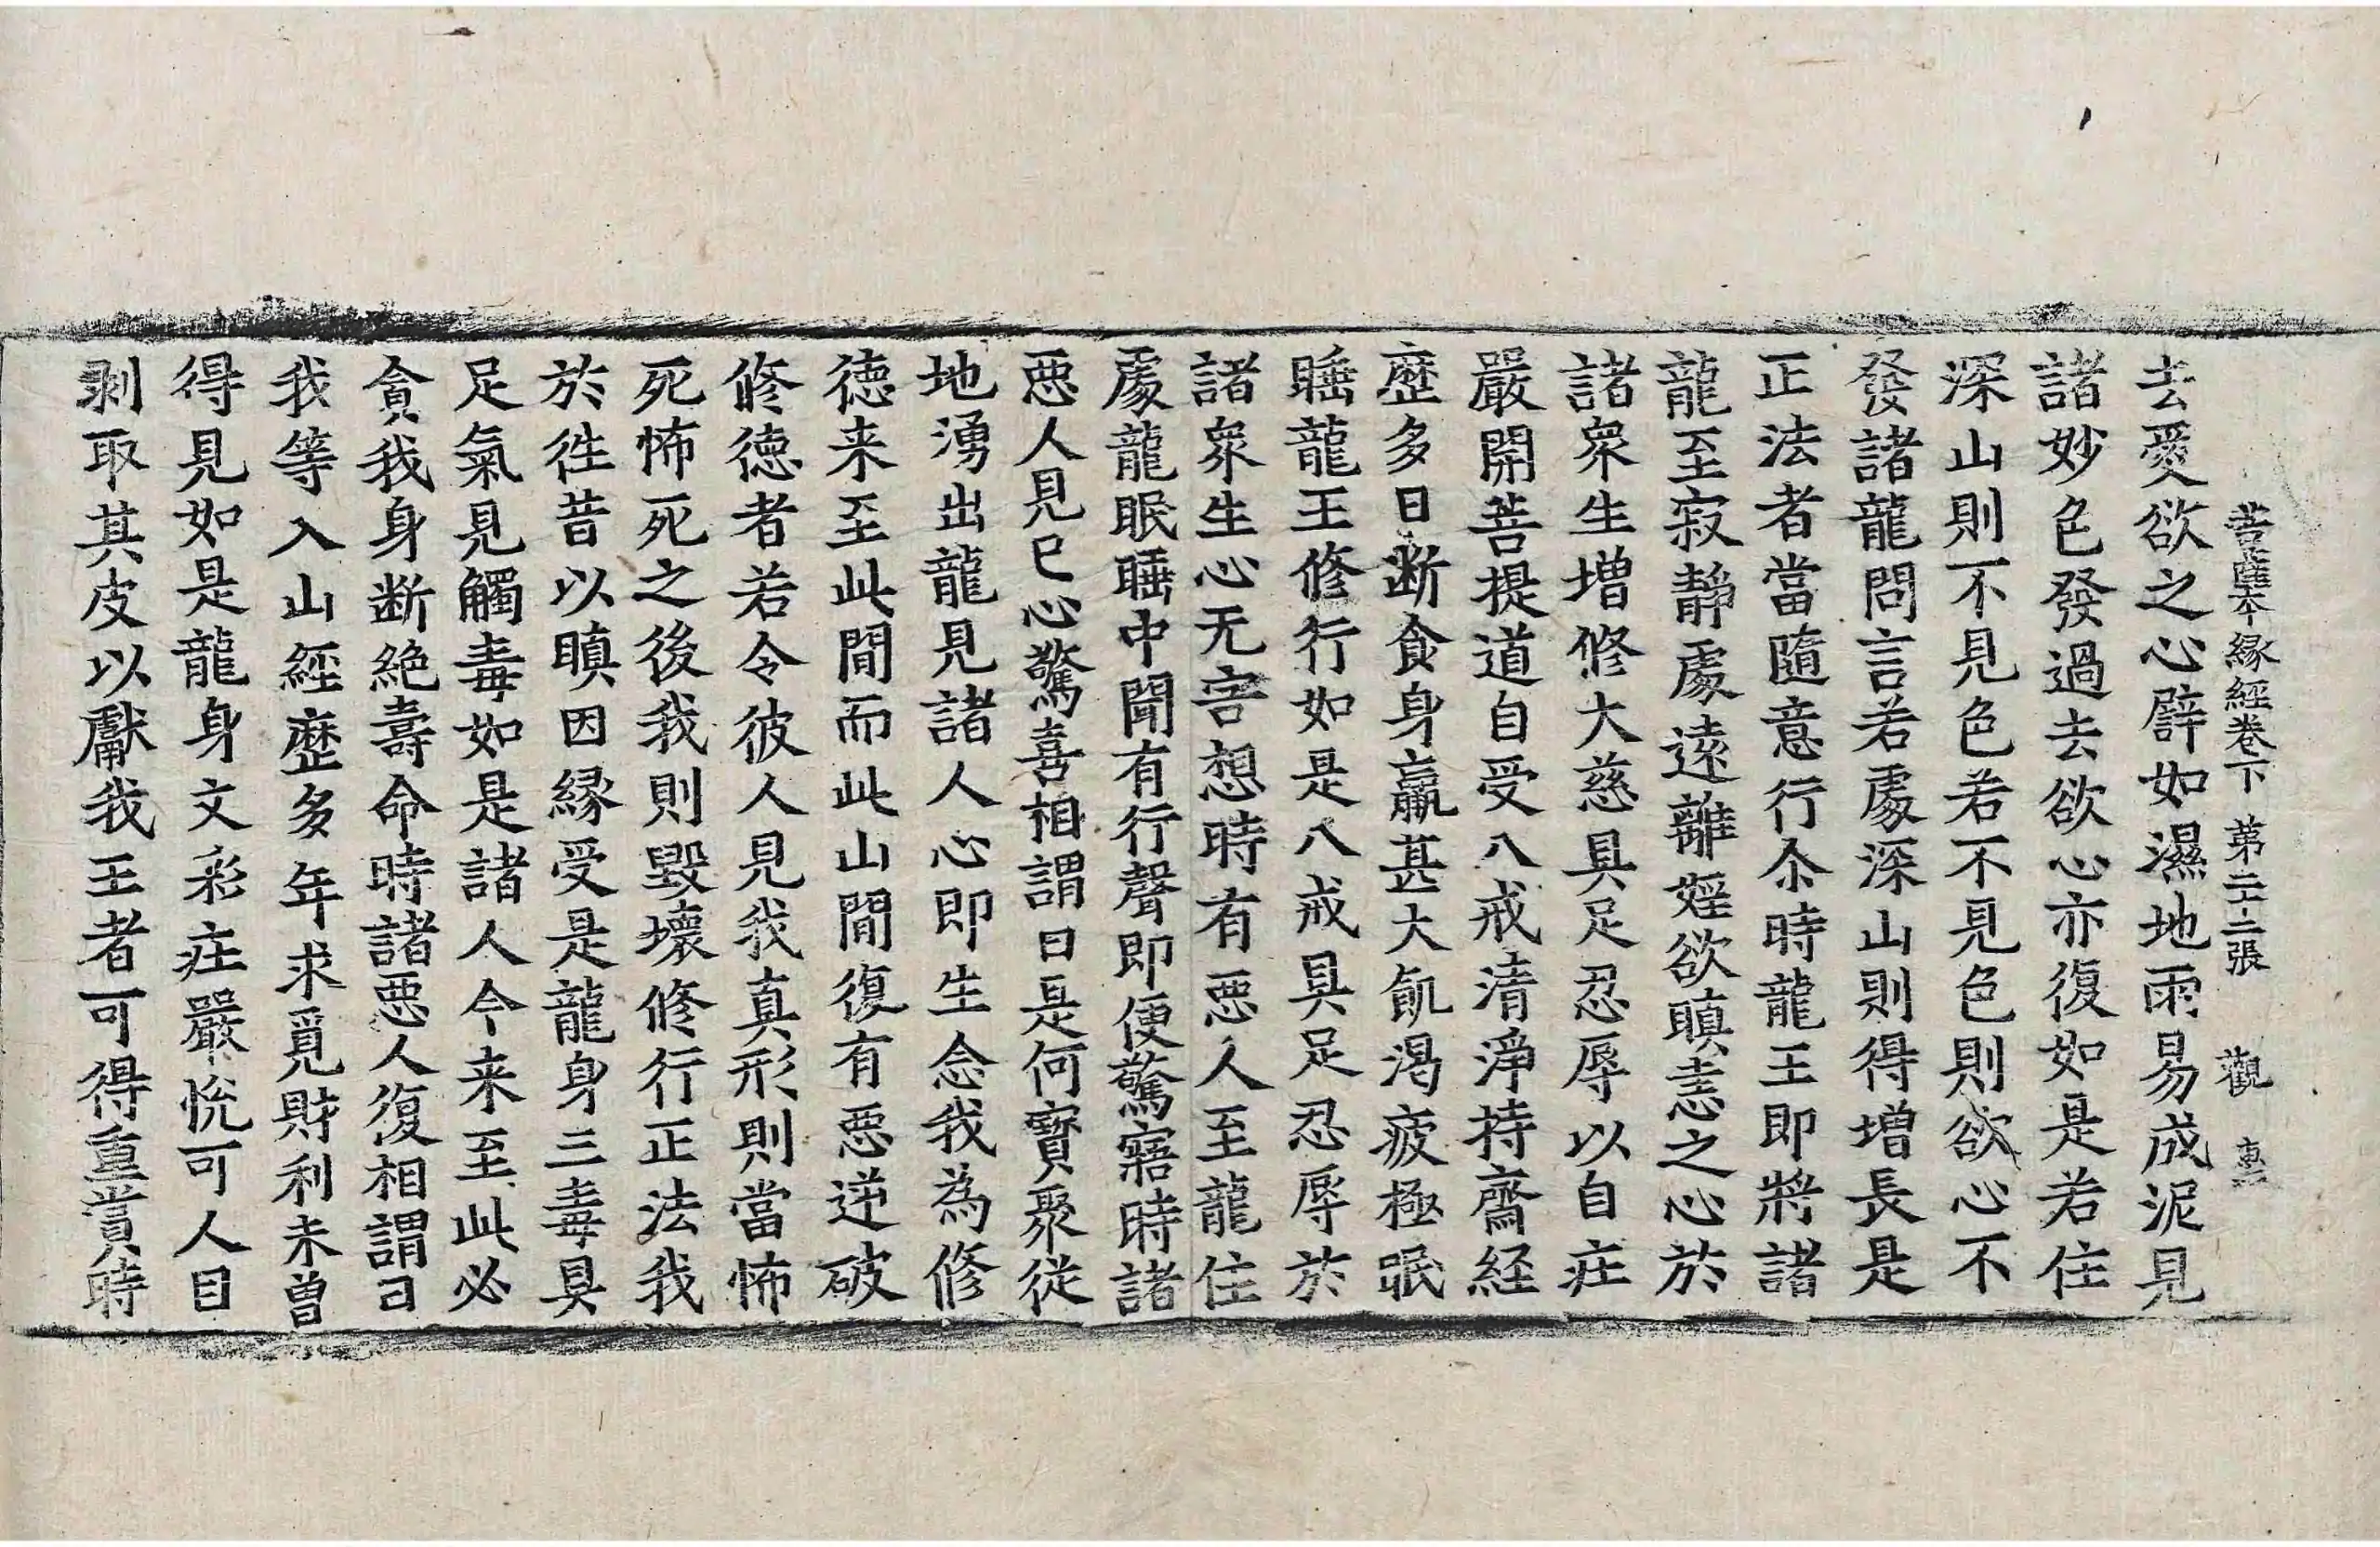 菩薩本緣經卷下 第二十二張 觀
去愛欲之心譬如濕地雨易成泥見
諸妙色發過去欲心亦復如是若住
深山則不見色若不見色則欲心不
發諸龍問言若處深山則得增長是
正法者當隨意行尒時龍王即將諸
龍至寂靜處遠離婬欲瞋恚之心於
諸衆生增修大慈具足忍辱以自庄
嚴開菩提道自受八戒清淨持齋経
歷多日断食身羸甚大飢渴疲極眠
睡龍王修行如是八戒具足忍辱於
諸衆生心无害想時有惡人至龍住
處龍眠睡中聞有行聲即便驚寤時諸
惡人見已心驚喜相謂曰是何寶聚從
地湧出龍見諸人心即生念我為修
德来至此間而此山間復有惡逆破
修德者若令彼人見我真形則當怖
死怖死之後我則毀壞修行正法我
於徃昔以瞋因縁受是龍身三毒具
足氣見觸毒如是諸人今来至此必
貪我身断絕壽命時諸惡人復相謂曰
我等入山經歷多年求覓財利未曽
得見如是龍身文彩庄嚴悅可人目
剥取其皮以獻我王者可得重賞時